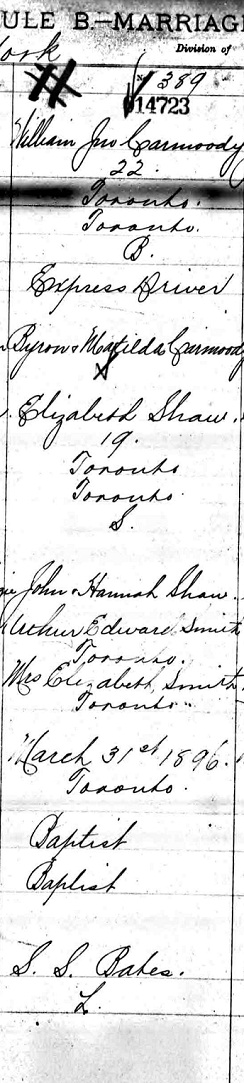 ULE B.—MARRIAGE
ork
Division of
389
014723
William Jno Carmoody
22
Toronto.
Toronto.
B.
Express Driver
Byron & Matilda Carmoody
Elizabeth Shaw.
19.
Toronto
Toronto.
S.
John & Hannah Shaw.
Arthur Edward Smith
Toronto.
Mrs Elizabeth Smith
Toronto.
March 31st 1896.
Toronto.
Baptist
Baptist
S. S. Bates.
L.